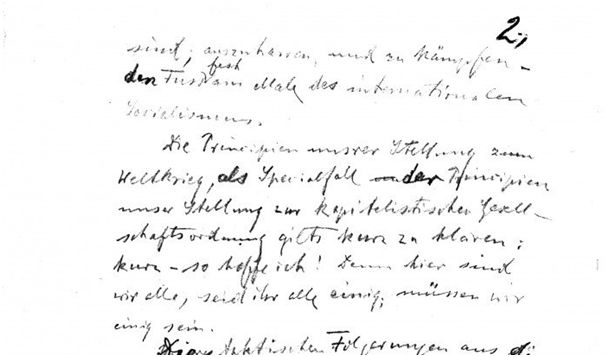 2.,
sind; auszuharren, und zu kämpfen –
den Fuß fest am Male des internationalen
Socialismus.
Die Principien unsrer Stellung zum
Weltkrieg, als Specialfall der Principien
unser Stellung zur kapitalistischen Gesell-
schaftsordnung gilts kurz zu klären;
kurz – so hoffe ich! Denn hier sind
wir alle, seid ihr alle einig, müssen wir
einig sein.
taktischen Folgerungen aus